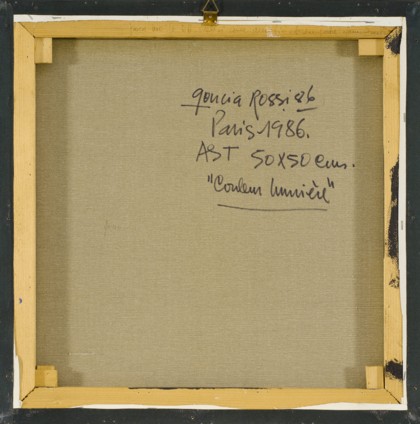 garcia Rossi 86
Paris 1986.
AST 50X50 cms.
"Couleur lumière"